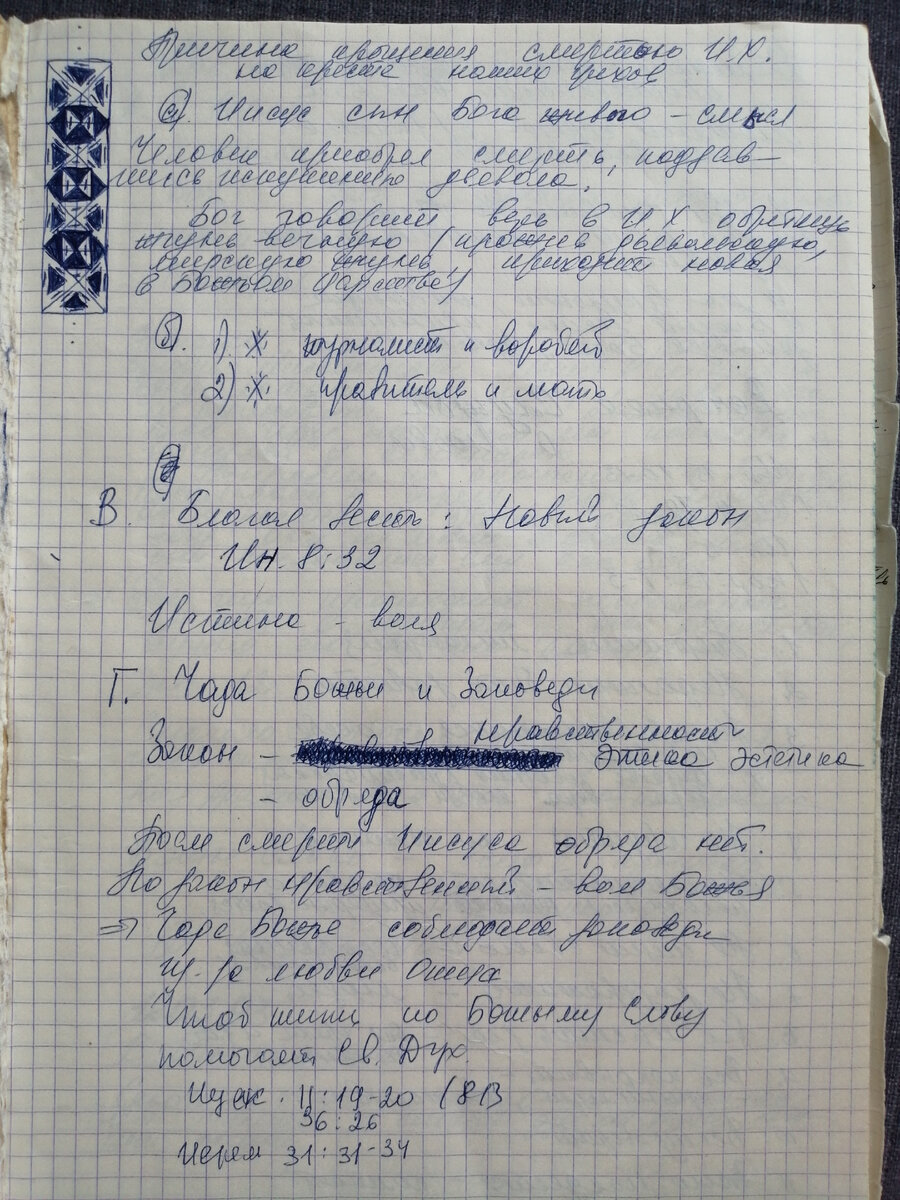 Причина прощения смертью И.Х.
на кресте наших грехов
а). Иисус сын Бога живого – смысл
Человек приобрел смерть, поддав-
шись искушению дьявола.
Бог говорит верь в И Х обретишь
жизнь вечную (прожив дьявольскую,
мирскую жизнь, приходит новая
в Божьем Царстве)
б). 1) Ж журналист и воробей
2) Ж правитель и мать
В. Благая весть: Новый закон
Ин. 8:32
Истина – воля
Г. Чада Божьи и Заповеди
нравственность
Закон – этика эстетика
– обряда
После смерти Иисуса обряда нет.
Но закон нравственный – воля Божья
⇒ Чадо Божье соблюдает заповеди
из-за любви Отца
Чтоб жить по Божьему Слову
помогает Св. Дух.
Иезек. 11:19-20 (8В
36:26
Иерем 31:31-34